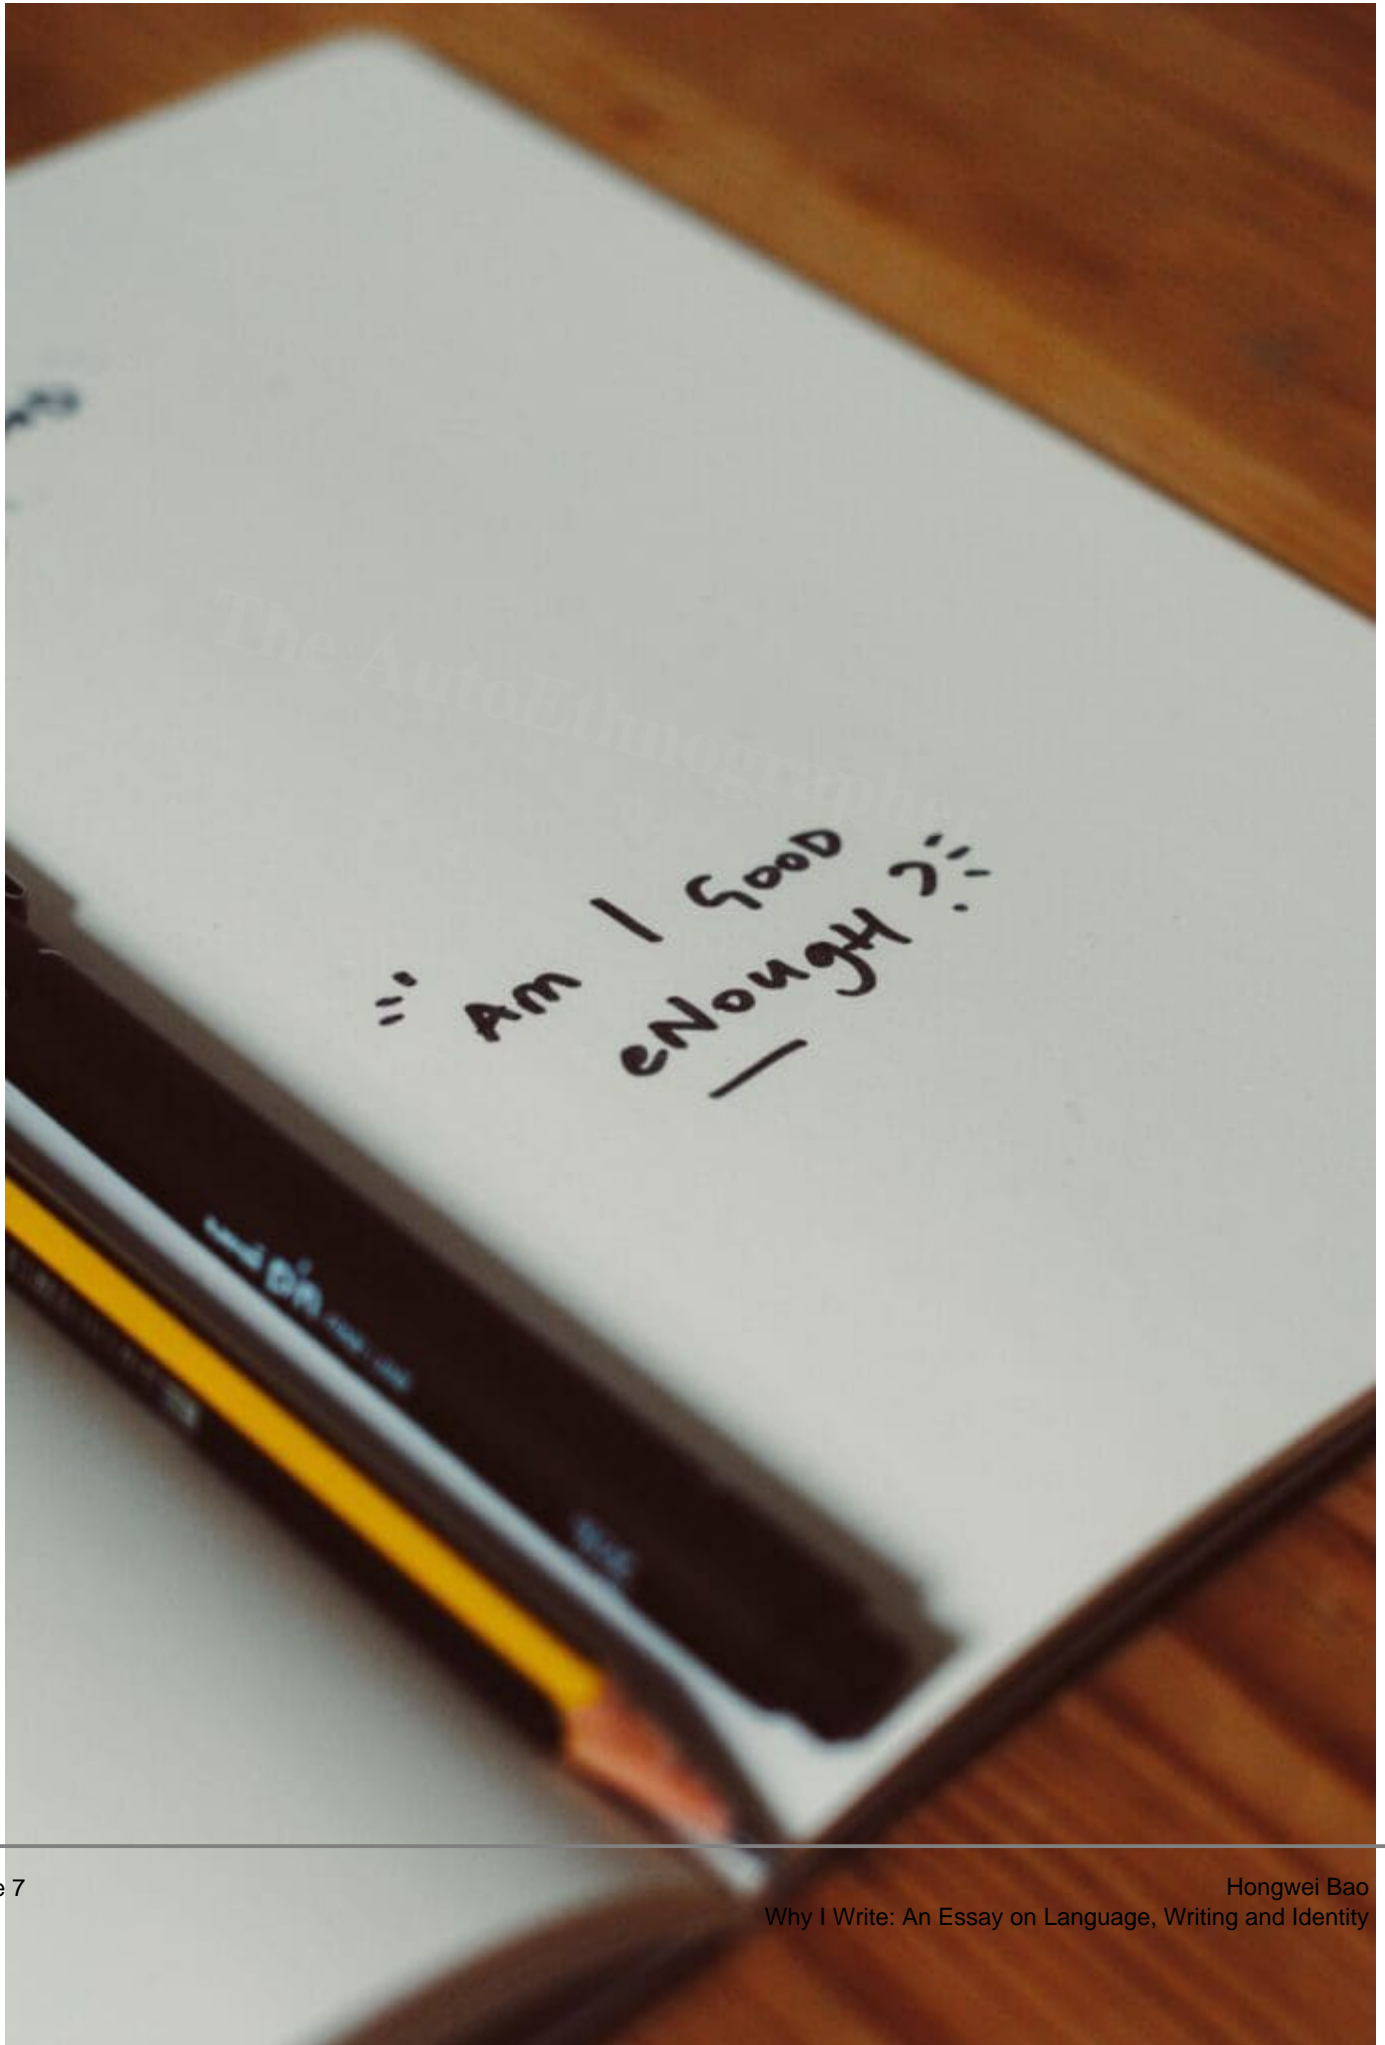 The AutoEthnographer
Am I GooD
eNougH?
uni pin
e 7
Hongwei Bao
Why I Write: An Essay on Language, Writing and Identity